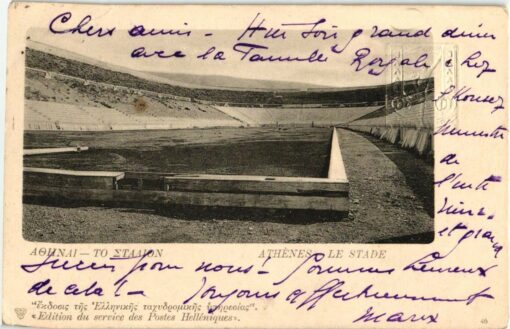 Chers amis — Hier soir grand diner
avec la Famille Royale chez
Ministre
de
l'Inté
rieur
et grand
ΑΘΗΝΑΙ — ΤΟ ΣΤΑΔΙΟΝ
ATHÈNES — LE STADE
Succès pour nous — Sommes heureux
de cela! — Toujours affectueusement
"Ἔκδοσις τῆς Ἑλληνικῆς ταχυδρομικῆς ὑπηρεσίας".
«Edition du service des Postes Helléniques».